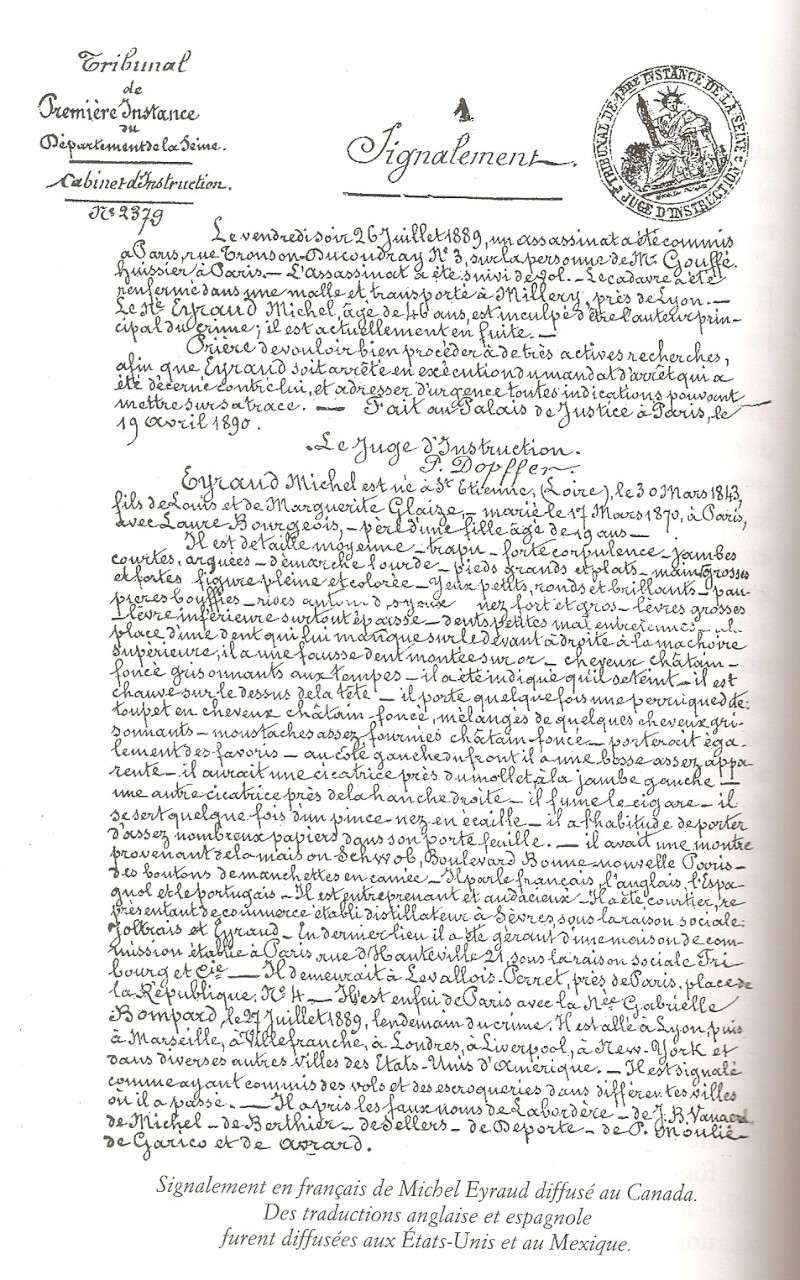 Tribunal
de
Première Instance
du
Département de la Seine.
Cabinet d'Instruction.
No 2379
1
Signalement.
TRIBUNAL DE 1ÈRE INSTANCE DE LA SEINE
JUGE D'INSTRUCTION
Le vendredi soir 26 Juillet 1889, un assassinat a été commis
à Paris, rue Tronson-Ducoudray No 3, sur la personne de Mr Gouffé,
huissier à Paris. — L'Assassinat a été suivi de vol. — Le cadavre a été
renfermé dans une malle et transporté à Millery, près de Lyon. —
Le né Eyraud Michel, âgé de 46 ans, est inculpé d'être l'auteur prin-
cipal du crime; il est actuellement en fuite. —
Prière de vouloir bien procéder à de très actives recherches,
afin que Eyraud soit arrêté en exécution du mandat d'arrêt qui a
été décerné contre lui, et adresser d'urgence toutes indications pouvant
mettre sur sa trace. — Fait au Palais de Justice à Paris, le
19 Avril 1890.
Le Juge d'Instruction.
P. Dopffer.
Eyraud Michel est né à St Etienne, (Loire), le 30 Mars 1843,
fils de Louis et de Marguerite Glaize, — marié le 17 Mars 1870, à Paris,
avec Laure Bourgeois, — père d'une fille âgé de 19 ans —
Il est de taille moyenne — trapu — forte corpulence — jambes
courtes, arquées — démarche lourde — pieds grands et plats — mains grosses
et fortes figure pleine et colorée — yeux petits, ronds et brillants — pau-
pières bouffies — rides yeux nez fort et gros — lèvres grosses
— lèvre inférieure surtout épaisse — dents petites mal entretenues
place d'une dent qui lui manque sur le devant à droite à la machoire
supérieure, il a une fausse dent montée sur or — cheveux châtain-
foncé grisonnants aux tempes — il a été indiqué qu'il se teint — il est
chauve sur le dessus de la tête — il porte quelque fois une perruque dite:
toupet en cheveux châtain-foncé, mélangés de quelques cheveux gri-
sonnants — moustaches assez fournies châtain-foncé — porterait éga-
lement des favoris — au côté gauche du front il a une bosse assez appa-
rente — il aurait une cicatrice près du mollet à la jambe gauche —
une autre cicatrice près de la hanche droite — il fume le cigare — il
se sert quelque fois d'un pince-nez en écaille — il a l'habitude de porter
d'assez nombreux papiers dans son porte feuille. — il avait une montre
provenant de la maison Schwob, Boulevard Bonne-nouvelle Paris —
des boutons de manchettes en camée — Il parle français, l'anglais, l'Espa-
gnol et le portugais — Il est entreprenant et audacieux — Il a été courtier, re
présentant de commerce établi distillateur à Sèvres, sous la raison sociale:
Joltrais et Eyraud — En dernier lieu il a été gérant d'une maison de com-
mission établie à Paris, rue d'Hauteville 21, sous la raison sociale Fri
bourg et Cie — Il demeurait à Levallois-Perret, près de Paris, place de
la République, No 4 — Il s'est enfui de Paris avec la Née Gabrielle
Bompard, le 27 Juillet 1889, lendemain du crime. Il est allé à Lyon, puis
à Marseille, à Villefranche, à Londres, à Liverpool, à New-York et
dans diverses autres villes des Etats-Unis d'Amérique. — Il est signalé
comme ayant commis des vols et des escroqueries dans différentes villes
où il a passé. — Il a pris les faux noms de Labordère — de J. B. Vanaerd
de Michel — de Berthier — de Sellers — de Deporte — de P. Moulié —
de Garico et de Avrard.
Signalement en français de Michel Eyraud diffusé au Canada.
Des traductions anglaise et espagnole
furent diffusées aux États-Unis et au Mexique.